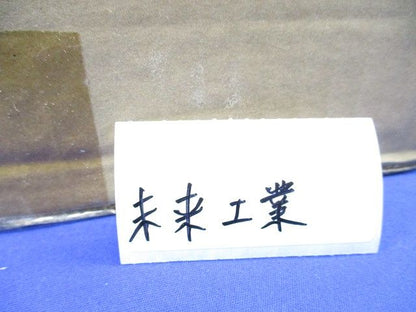 未来工業